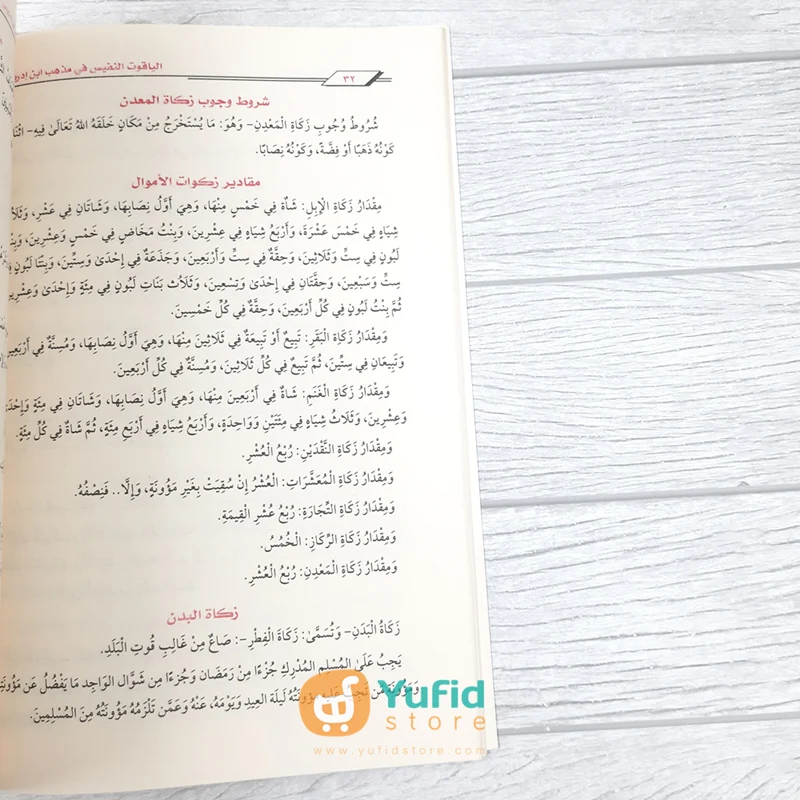 الياقوت النفيس في مذهب ابن إدر
٣٢
شروط وجوب زكاة المعدن
شُرُوطُ وُجُوبِ زَكَاةِ الْمَعْدِنِ- وَهُوَ: مَا يُسْتَخْرَجُ مِنْ مَكَانٍ خَلَقَهُ اللهُ تَعَالَى فِيهِ- اثْنَا
كَوْنُهُ ذَهَبًا أَوْ فِضَّةً، وَكَوْنُهُ نِصَابًا.
مقادير زكوات الأموال
مِقْدَارُ زَكَاةِ الْإِبِلِ: شَاةٌ فِي خَمْسٍ مِنْهَا، وَهِيَ أَوَّلُ نِصَابِهَا، وَشَاتَانِ فِي عَشْرٍ، وَثَلَاثُ
شِيَاهٍ فِي خَمْسَ عَشْرَةَ، وَأَرْبَعُ شِيَاهٍ فِي عِشْرِينَ، وَبِنْتُ مَخَاضٍ فِي خَمْسٍ وَعِشْرِينَ، وَبِنْتُ
لَبُونٍ فِي سِتٍّ وَثَلَاثِينَ، وَحِقَّةٌ فِي سِتٍّ وَأَرْبَعِينَ، وَجَذَعَةٌ فِي إِحْدَىٰ وَسِتِّينَ، وَبِنْتَا لَبُونٍ فِي
سِتٍّ وَسَبْعِينَ، وَحِقَّتَانِ فِي إِحْدَىٰ وَتِسْعِينَ، وَثَلَاثُ بَنَاتِ لَبُونٍ فِي مِئَةٍ وَإِحْدَىٰ وَعِشْرِينَ
ثُمَّ بِنْتُ لَبُونٍ فِي كُلِّ أَرْبَعِينَ، وَحِقَّةٌ فِي كُلِّ خَمْسِينَ.
وَمِقْدَارُ زَكَاةِ الْبَقَرِ: تَبِيعٌ أَوْ تَبِيعَةٌ فِي ثَلَاثِينَ مِنْهَا، وَهِيَ أَوَّلُ نِصَابِهَا، وَمُسِنَّةٌ فِي أَرْبَعِينَ
وَتَبِيعَانِ فِي سِتِّينَ، ثُمَّ تَبِيعٌ فِي كُلِّ ثَلَاثِينَ، وَمُسِنَّةٌ فِي كُلِّ أَرْبَعِينَ.
وَمِقْدَارُ زَكَاةِ الْغَنَمِ: شَاةٌ فِي أَرْبَعِينَ مِنْهَا، وَهِيَ أَوَّلُ نِصَابِهَا، وَشَاتَانِ فِي مِئَةٍ وَإِحْدَىٰ
وَعِشْرِينَ، وَثَلَاثُ شِيَاهٍ فِي مِئَتَيْنِ وَوَاحِدَةٍ، وَأَرْبَعُ شِيَاهٍ فِي أَرْبَعِ مِئَةٍ، ثُمَّ شَاةٌ فِي كُلِّ مِئَةٍ.
وَمِقْدَارُ زَكَاةِ النَّقْدَيْنِ: رُبُعُ الْعُشْرِ.
وَمِقْدَارُ زَكَاةِ الْمُعَشَّرَاتِ: الْعُشْرُ إِنْ سُقِيَتْ بِغَيْرِ مَؤُونَةٍ، وَإِلَّا.. فَنِصْفُهُ.
وَمِقْدَارُ زَكَاةِ التِّجَارَةِ: رُبُعُ عُشْرِ الْقِيمَةِ.
وَمِقْدَارُ زَكَاةِ الرِّكَازِ: الْخُمُسُ.
وَمِقْدَارُ زَكَاةِ الْمَعْدِنِ: رُبُعُ الْعُشْرِ.
زكاة البدن
زَكَاةُ الْبَدَنِ- وَتُسَمَّىٰ: زَكَاةَ الْفِطْرِ-: صَاعٌ مِنْ غَالِبِ قُوتِ الْبَلَدِ.
يَجِبُ عَلَى الْمُسْلِمِ الْمُدْرِكِ جُزْءًا مِنْ رَمَضَانَ وَجُزْءًا مِنْ شَوَّالٍ الْوَاجِدِ مَا يَفْضُلُ عَنْ مَؤُونَتِهِ
وَمَؤُونَةِ مَنْ تَجِبُ عَلَيْهِ مَؤُونَتُهُ لَيْلَةَ الْعِيدِ وَيَوْمَهُ، عَنْهُ وَعَمَّنْ تَلْزَمُهُ مَؤُونَتُهُ مِنَ الْمُسْلِمِينَ.
Yufid
store
www.yufidstore.com